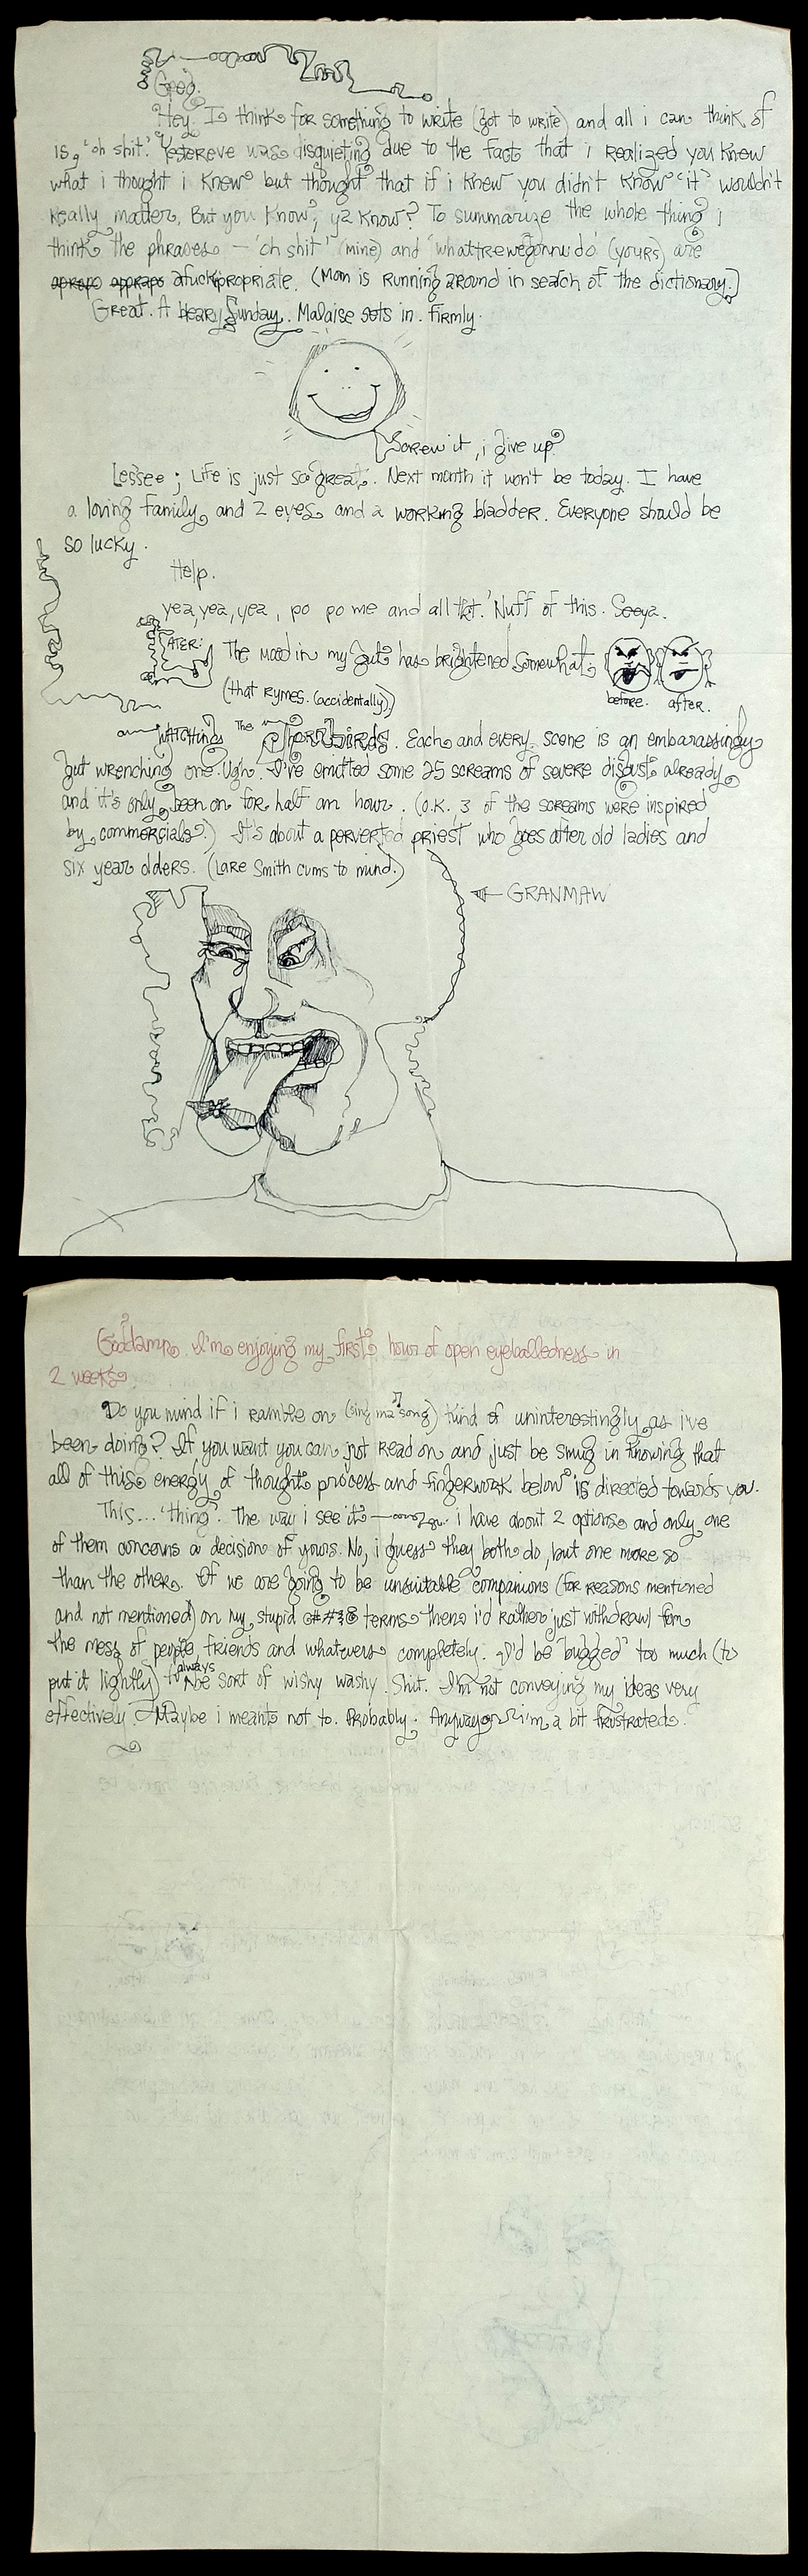 Good.
Hey. I think for something to write (got to write) and all i can think of
is, 'oh shit.' Yestereve was disquieting due to the fact that i realized you knew
what i thought i knew but thought that if i knew you didn't know 'it' wouldn't
really matter. But you know, ya know? To summarize the whole thing i
think the phrases — 'oh shit' (mine) and 'whattrewegonnudo' (yours) are
apropo appropo afuckipropriate. (Mom is running around in search of the dictionary.)
Great. A bleary Sunday. Malaise sets in. Firmly.
Screw it, i give up.
Lessee; Life is just so great. Next month it won't be today. I have
a loving family and 2 eyes and a working bladder. Everyone should be
so lucky.
Help.
yea, yea, yea, po po me and all tht. 'Nuff of this. Seeya.
LATER: The mood in my gut has brightened somewhat
before. after.
(that rymes. (accidentally))
WATCHING The Thornbirds. Each and every scene is an embarassingly
gut wrenching one. Ugh. I've emitted some 25 screams of severe disgust already
and it's only been on for half an hour. (O.K. 3 of the screams were inspired
by commercials.) It's about a perverted priest who goes after old ladies and
six year olders. (Lare Smith cums to mind.)
GRANMAW
Goddamn. I'm enjoying my first hour of open eyeballedness in
2 weeks.
Do you mind if i ramble on (sing ma song) kind of uninterestingly as i've
been doing? If you want you can not read on and just be smug in knowing that
all of this energy of thought process and fingerwork below is directed towards you.
This... 'thing'. The way i see it — i have about 2 options and only one
of them concerns a decision of yours. No, i guess they both do, but one more so
than the other. If we are going to be unsuitable companions (for reasons mentioned
and not mentioned) on my stupid @##&@ terms then i'd rather just withdrawl from
the mess of people, friends and whatevers completely. I'd be "bugged" too much (to
put it lightly) to always be sort of wishy washy. Shit. I'm not conveying my ideas very
effectively. Maybe i meant not to. Probably. Anyway i'm a bit frustrated.